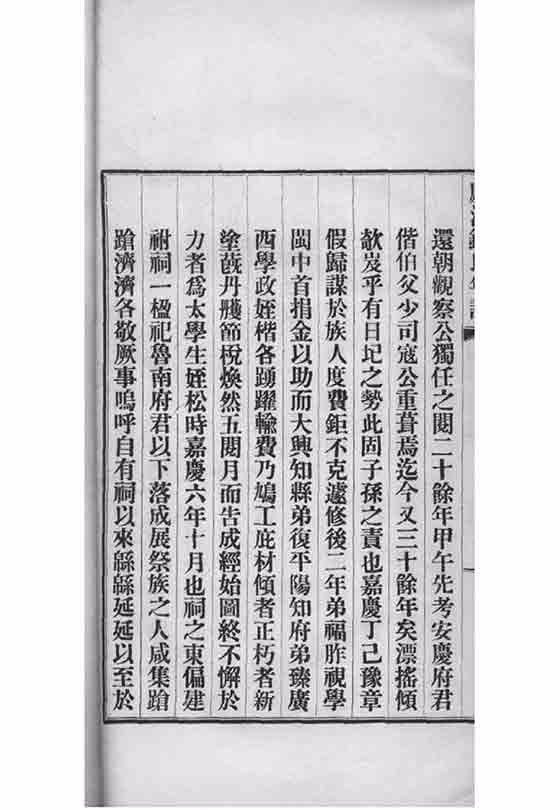 還朝觀察公獨任之閱二十餘年甲午先考安慶府君
偕伯父少司寇公重葺焉迄今又三十餘年矣漂搖傾
欹岌乎有日圮之勢此固子孫之責也嘉慶丁己豫章
假歸謀於族人度費鉅不克遽修後二年弟福胙視學
閩中首捐金以助而大興知縣弟復平陽知府弟臻廣
西學政姪楷各踴躍輸費乃鳩工庇材傾者正朽者新
塗蔇丹雘節梲煥然五閱月而告成經始圖終不懈於
力者爲太學生姪松時嘉慶六年十月也祠之東偏建
祔祠一楹祀魯南府君以下落成展祭族之人咸集蹌
蹌濟濟各敬厥事嗚呼自有祠以來緜緜延延以至於